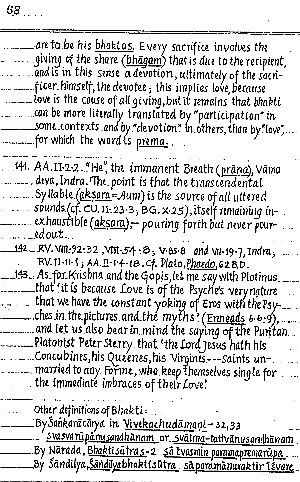 68
are to be his bhaktas. Every sacrifice involves the
giving of the share (bhāgam) that is due to the recipient,
and is in this sense a devotion, ultimately of the sacri-
ficer himself, the devotee; this implies love, because
love is the cause of all giving, but it remains that bhakti
can be more literally translated by "participation" in
some contexts and by "devotion" in others, than by "love",
for which the word is prema.
141. AA.II-2-2. "He", the immanent Breath (prāna), Vāma
deva, Indra. The point is that the transcendental
Syllable (akṣara = Aum) is the source of all uttered
sounds (cf. CU.II-23-3; BG.X-25), itself remaining in-
exhaustible (akṣara),— pouring forth but never pour-
ed out.
142. RV.VIII-92-32, VIII-54-8; V-85-8 and VII-19-7, Indra;
RV.II-11-1; AA.II-1-4-18. Cf. Plato, Phaedo, 62 B,D.
143. As, for Krishna and the Gopis, let me say with Plotinus
that 'it is because Love is of the Psyche's very nature
that we have the constant yoking of Eros with the Psy-
ches in the pictures and the myths' (Enneads 6-9-9),
and let us also bear in mind the saying of the Puritan
Platonist Peter Sterry that 'the Lord Jesus hath his
Concubines, his Queenes, his Virgins;---Saints un-
married to any Forme, who keep themselves single for
the immediate imbraces of their Love.'
Other definitions of Bhakti:
By Śaṅkarācārya in Vivekachudāmaṇi - 32,33
svasvarūpānusandhānam or svātma-tattvānusandhānam
By Nārada, Bhaktisūtras-2 sā tvasmin paramapremarūpa
By Śāndilya, Śāndilyabhaktisūtra sā parāmānuraktir Īśvare